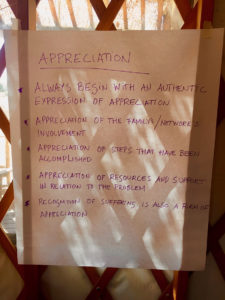 APPRECIATION
ALWAYS BEGIN WITH AN AUTHENTIC
EXPRESSION OF APPRECIATION
APPRECIATION OF THE FAMILY/NETWORK'S
INVOLVEMENT
APPRECIATION OF STEPS THAT HAVE BEEN
ACCOMPLISHED
APPRECIATION OF RESOURCES AND SUPPORT
IN RELATION TO THE PROBLEM
RECOGNITION OF SUFFERING IS ALSO A FORM OF
APPRECIATION